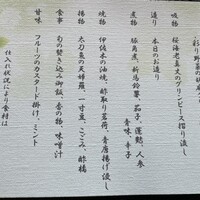 吸物　桜海老真丈のグリンピース摺り流し
造り　本日のお造り
煮物　豚角煮、新馬鈴薯、茄子、蓮麩、人参
青味、辛子
焼物　伊佐木の油焼、酢取り茗荷、青唐揚げ浸し
揚物　太刀魚の天婦羅、一寸豆、こごみ、酢橘
食事　旬の炊き込み御飯、香の物、味噌汁
甘味　フルーツのカスタード掛け、ミント
仕入れ状況により食材は